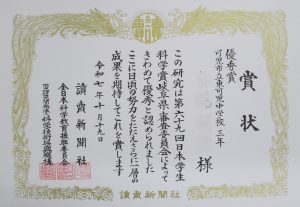 賞状
優秀賞
可児市立東可児中学校 三年
様
この研究は第六十九回日本学生
科学賞岐阜県審査委員会によって
きわめて優秀と認められました
ここに日頃の努力をたたえさらに一層の
成果を期待してこれを賞します
令和七年十月十九日
讀賣新聞社
全日本科学教育振興委員会
讀賣新聞社